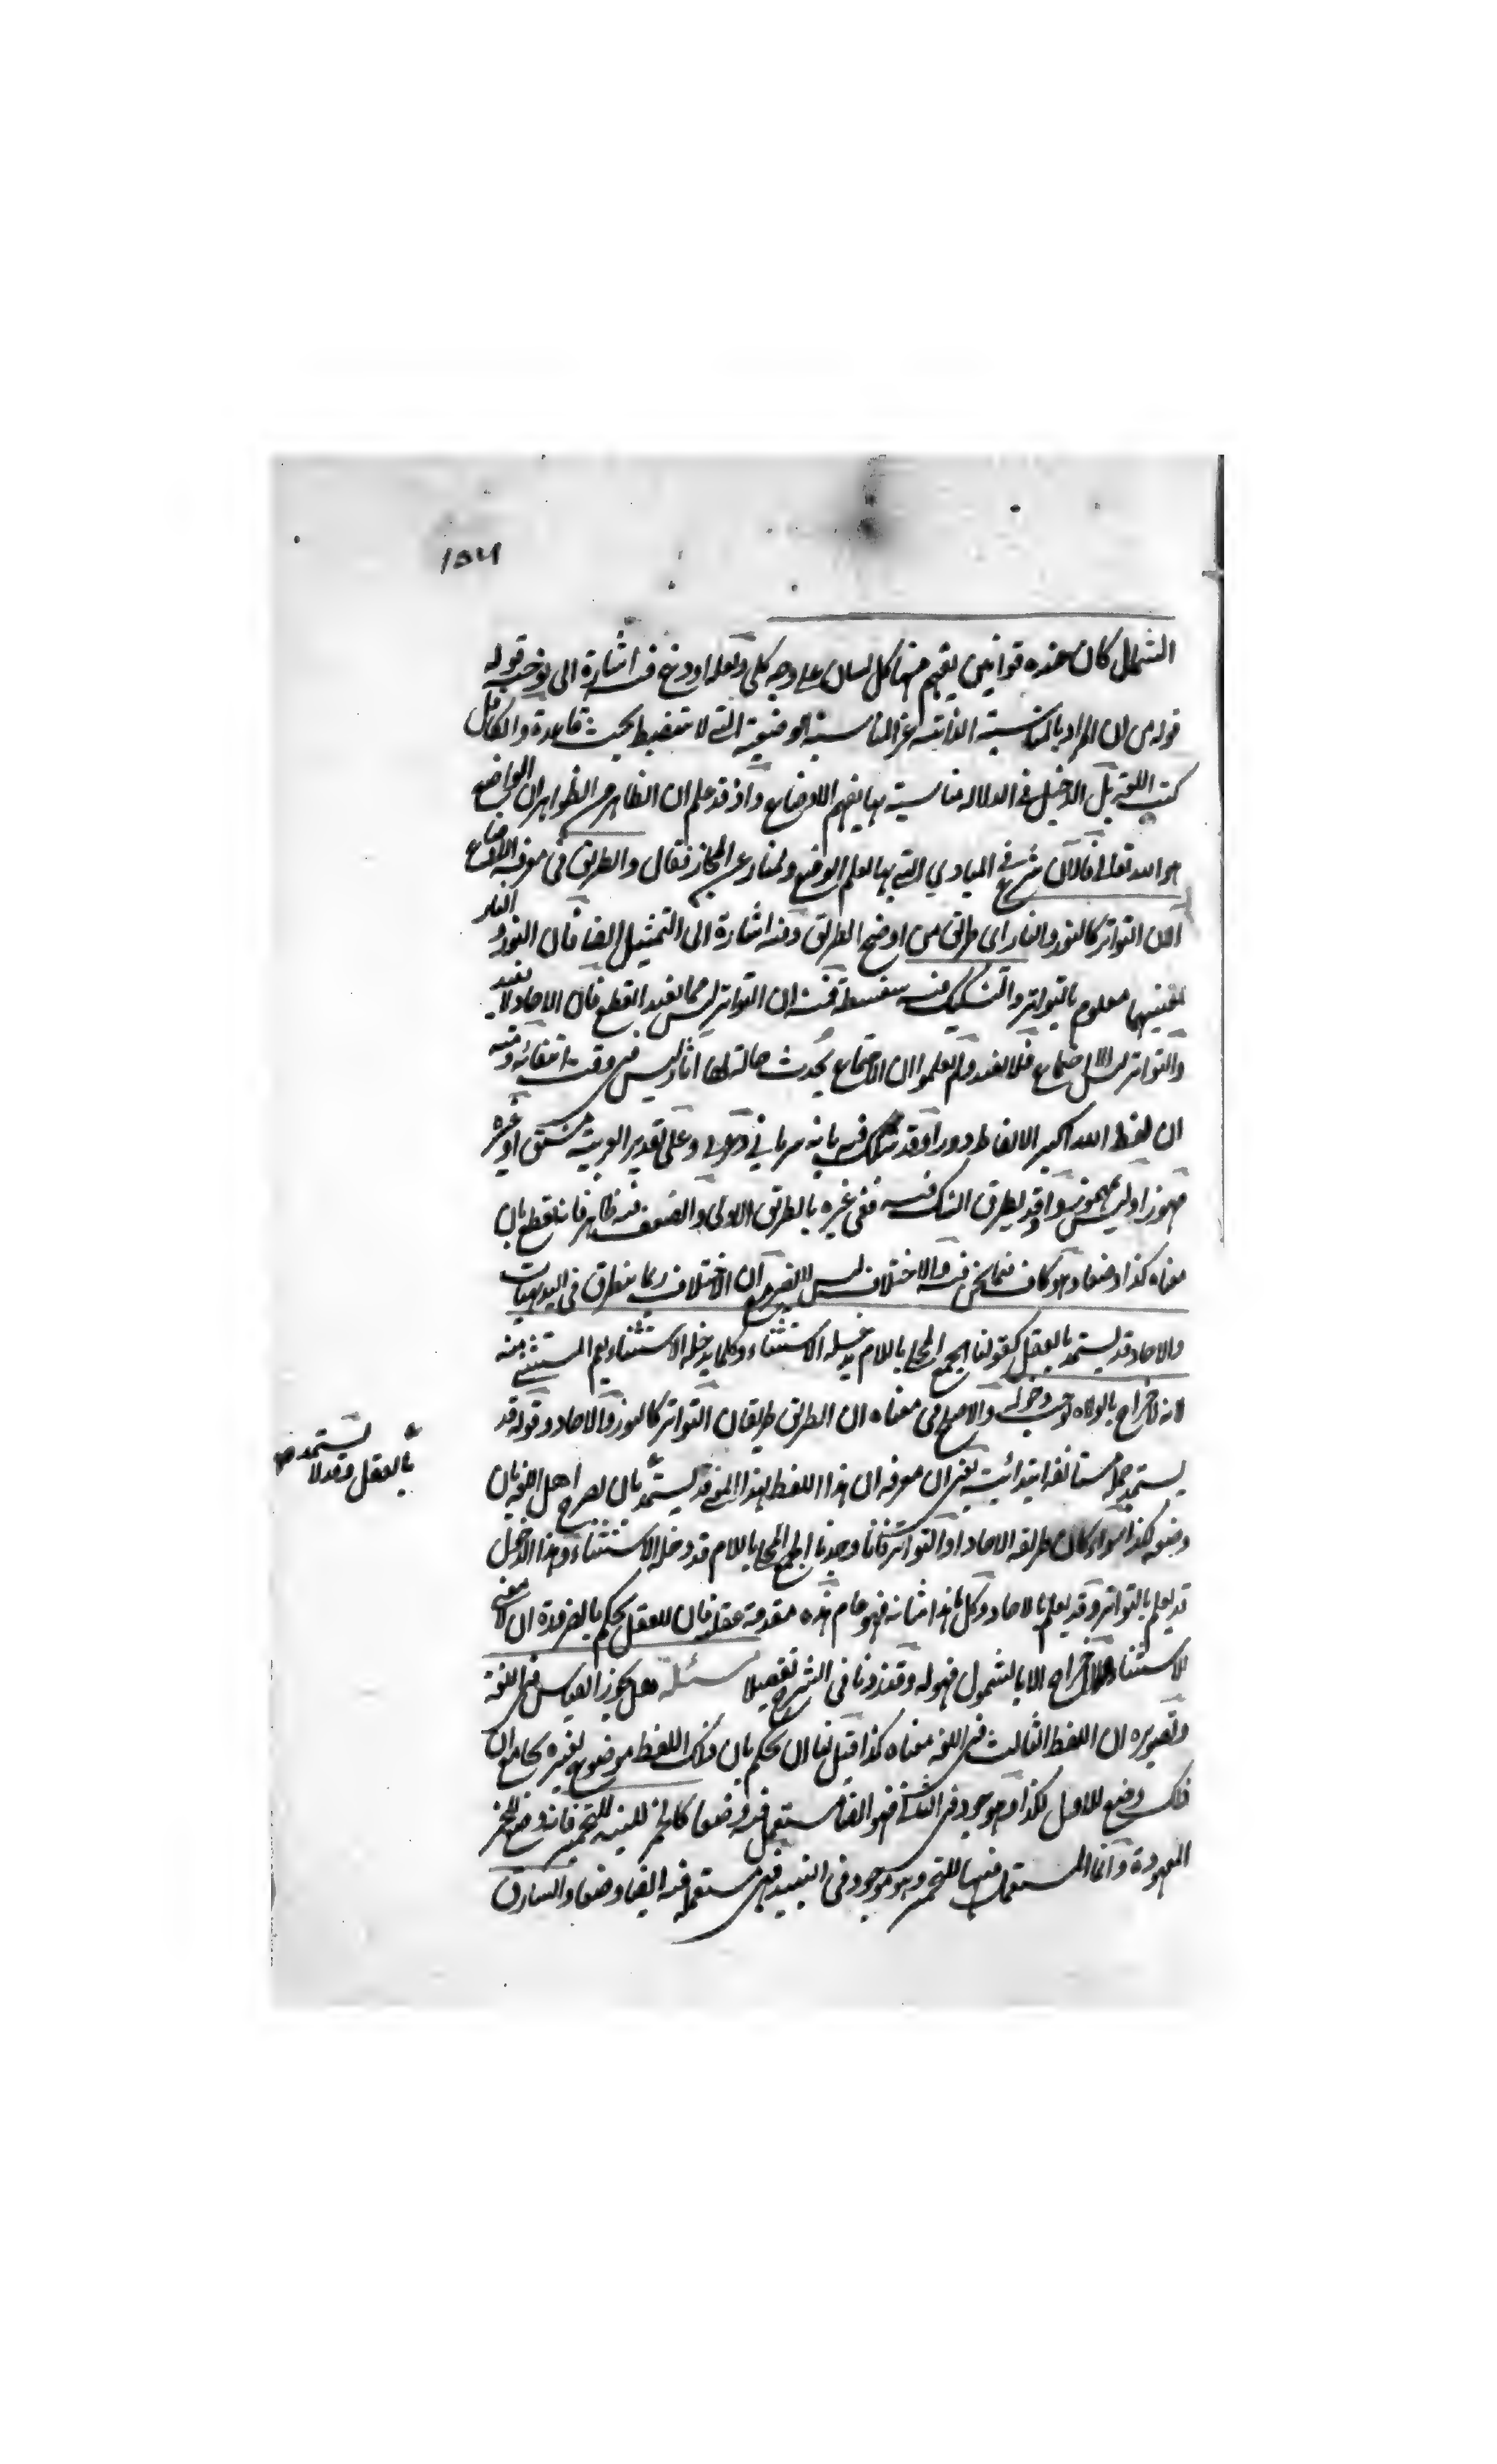 ١٥٦
الشمال كان عنده قوانين يفهم منها كل لسان على وجه كلي ولعله اودع فيه اشارة الى توجيه قوله
قوله من ان المراد بالمناسبة الذاتية غير المناسبة الوضعية التي لا تنضبط تحت قاعدة والكافل
كتب اللغة بل الدخيل في الدلالة مناسبة بها يفهم الاوضاع واذ قد علم ان الظاهر من الظواهر ان الواضع
هو الله تعالى فالآن شرع في المبادي التي بها يعلم الوضع ويمتاز عن المجاز فقال والطريق في معرفة الاوضاع
الآن التواتر كالنور والنار اى طريق من اوضح الطريق وفيه اشارة الى التمثيل ايضا فان النور والنار
لمعنييهما معلوم بالتواتر والتشكيك فيه سفسطة فمنه ان التواتر ليس مما يفيد القطع فان الاحاد لا يفيد
والتواتر ليس الا اجتماع فلا يفيد ولم يعلموا ان الاجتماع يحدث حالة لها آثار ليس في وقت انتفائه ومنه
ان لفظ الله اكبر الالفاظ دورا وقد شكك فيه بانه سرياني او عربي وعلى تقدير العربية مشتق او غيره
مهموز او ليس بمهموز واذ قد يطرق الشك فيه ففي غيره بالطريق الاولى والضعف فيه ظاهر فانا نقطع بان
معناه كذا وضعا وهو كاف فيما نحن فيه والاختلاف ليس لا يضر مع ان الاختلاف ربما يتطرق في البديهيات
والاحاد قد يستمد بالعقل كقولنا الجمع المحلى باللام يدخله الاستثناء وكلما يدخله الاستثناء يعم المستثنى منه
لانه لاخراج ما لولاه لوجب دخوله والاصح في معناه ان الطريق طريقان التواتر كالنور والاحاد وقوله قد
يستمد جملة مستانفة ابتدائية يعني ان معرفة ان هذا اللفظ لهذا المعنى قد يستمد بان يصرح اهل اللغة بان
وضعه لكذا سواء كان طريقه الاحاد او التواتر فانا وجدنا الجمع المحلى باللام قد دخله الاستثناء وهذا الدخيل
قد يعلم بالتواتر وقد يعلم بالاحاد وكل ما هذا شانه فهو عام هذه مقدمة عقلية فان للعقل يحكم بالضرورة ان لا معنى
الاستثناء والاخراج الا بالشمول فهو له وقد زدنا في الشرح تفصيلا مسئلة هل يجوز القياس في اللغة
وتصويره ان اللفظ الثالث في اللغة معناه كذا قبل لنا ان يحكم بان ذلك اللفظ موضوع لغيره بجامع ان
ذلك وضع للاول لكذا وهو موجود في الثاني فهو ايضا مستعمل فيه وضعا كالخمر للنبيذ للتخمير فانه وضع للخمر
المعهودة وانما المستعمل فيها للتخمير وهو موجود في النبيذ فهي مستعملة فيه ايضا وضعا والسارق
يستمد
بالعقل وقد لا